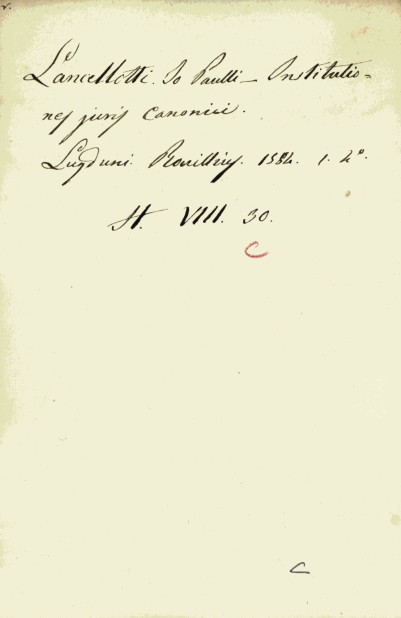 Lancellotti. Jo Paulli - Institutio=
nes juris canonici.
Lugduni. Rovillius. 1584. 1. 4°.
St. VIII. 30.
C
C